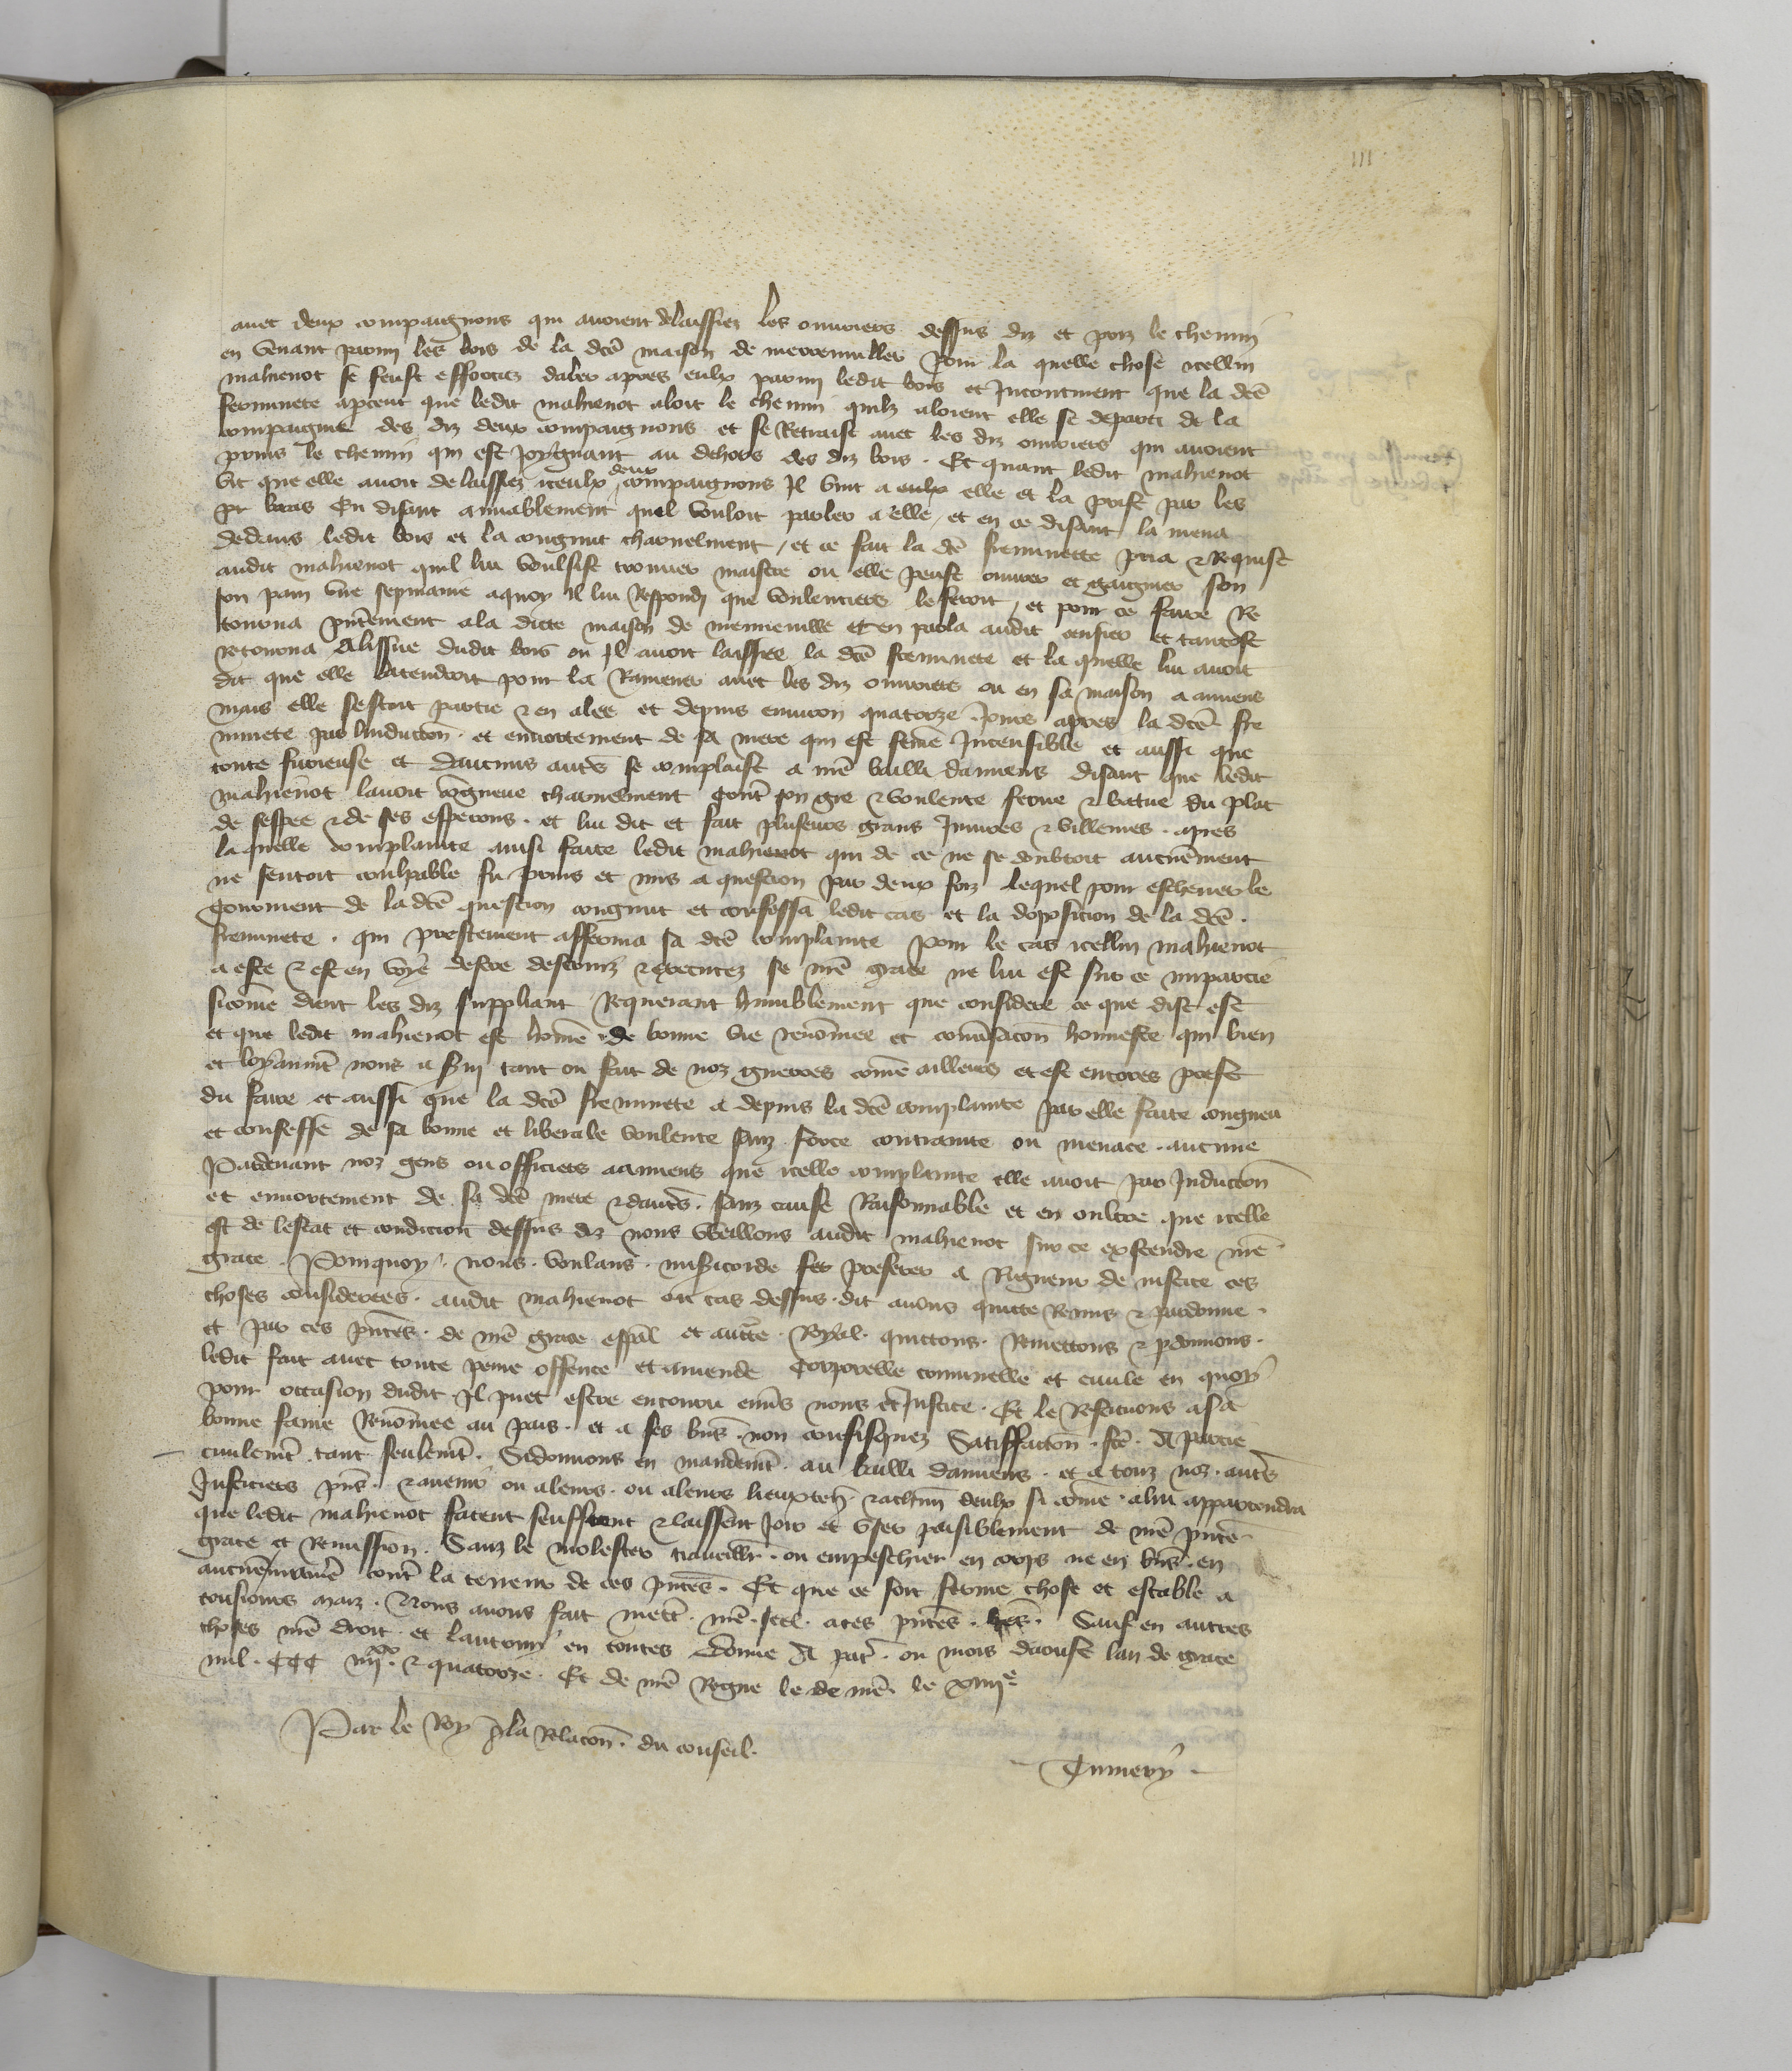 III
avec deux compaignons qui avoient delaissiez les ouvriers dessus diz et prins le chemin
en venant parmi les bois de la dicte maison de pour la quelle chose icellui
mahienot se feust efforciez daler apres eulx parmi ledit bois et Incontinent que la dcē
freminete apceut que ledit mahienot aloit le chemin quilz aloient elle se departi de la
compaignie des diz deux compaignons et se Retraist avec les diz ouvriers qui avoient
prins le chemin qui est Joygnant au dehors des diz bois . Et quant ledit mahienot
vit que elle avoit delaissiez iceulx deux compaignons Il vint a eulx elle et la prist par les
pr bras En disant amiablement quil vouloit parler a elle / et en ce disant la mena
dedans ledit bois et la congnut charnelment / et ce fait la dcē freminette pria & Requist
audit mahienot quil lui voulsist trouver maistre ou elle peust ouvrer et gaigner son
son pain une sepmaine aquoy Il lui Respondi que voulentiers le feroit / et pour ce faire Re
tourna pñtement ala dicte maison de et en parla audit censier et tantost
retourna alissue dudit bois ou Il avoit laissiee la dcē freminete et la quelle lui avoit
dit que elle latendroit pour la Ramener avec les diz ouvriers ou en sa maison a amiens
mais elle sestoit partie & en alee et depuis environ quatorze Jours apres la dcē fre
minete par linductōn . et ennortement de sa mere qui est femē Incensible et aussi que
toute furieuse et daucuns autrēs se complaist a nrē bailli damiens disant que ledit
mahienot lavoit cōgneue charnelment Contrē son gre & voulente ferue & batue du plat
de sespee & de ses esperons . et lui dit et fait pluseurs grans Injures & villenies . apres
la quelle complainte ainsi faite ledit mahienot qui de ce ne se doubtoit aucunēment
ne sentoit coulpable fu prins et mis a question par deux foiz lequel pour eschever le
tourment de la dcē question congnut et confessa ledit cas et la deposicion de la dcē .
freminete . qui prestement afferma sa dcē complainte Pour le cas icellui mahienot
a este & est en voyē destre destruiz & executez se nrē grace ne lui est sur ce impartie
sicōme dient les diz suppliant Requerant humblement que considere ce que dist est
et que ledit mahienot est homē de bonne vie renōmee et conv̄sacōn honneste qui bien
et loyaumt̄ nous a s̄vi tant ou fait de noz guerres cōme ailleurs et est encores prest
du faire et aussi que la dcē freminete a depuis la dcē complainte par elle faite congneu
et confesse de sa bonne et liberale voulente sanz force contrainte ou menace . aucune
Pardevant noz gens ou officiers aamiens que icelle complainte elle avoit par Inductōn
et ennortement de sa dcē mere & dautrēs . sanz cause Raisonnable et en oultre que icelle
est de lestat et condicion dessus diz nous vueillons audit mahienot sur ce exstendre nrē
grace . Pourquoy . nous . voulans . mis̄icorde preferer a Rigueur de justice ces
choses considerees . audit mahienot ou cas dessus . dit avons quicte Remis & pardonne .
et par ces pñtes . de nrē grace esp̄al et auctē . Royal . quictons . Remettons & pdonnons .
ledit fait avec toute peine offence et amende Corporelle criminelle et civile en quoy
pour occasion dudit Il puet estre encouru env̄s nous et Justice . Et le Restituons a sa
bonne fame Renōmee au pais . et a ses bn̄s . non confisquez Satisfactōn . fcē . A partie
civilemt̄ . tant seulemt̄ . Si donnons en mandemt̄ . au bailli damiens . et a touz noz . autrēs
Justiciers pñs . & avenir ou aleurs . ou aleurs lieuxten̄ . & achun̄ deulx si cōme . alui appartendra
que ledit mahienot facent seuffrent & laissent Joir et user paisiblement de nrē pñte
grace et Remission . Sanz le molester travaillr . ou empeschier en corps ne en bn̄s . en
aucunē contr̄ la teneur de ces pñtes . Et que ce soit ferme chose et estable a
tousjours maiz . Nous avons fait mett̄ . nrē . scel . a ces pñtes . Sauf en autres
choses nrē droit . et lautruy en toutes Donne A par̄ . ou mois daoust lan de grace
mil . CCC iiii.xx & quatorze . Et de nrē Regne le de nrē . le xiiiie
Par le Roy p̄ la Relacōn . du conseil .
Tumery .